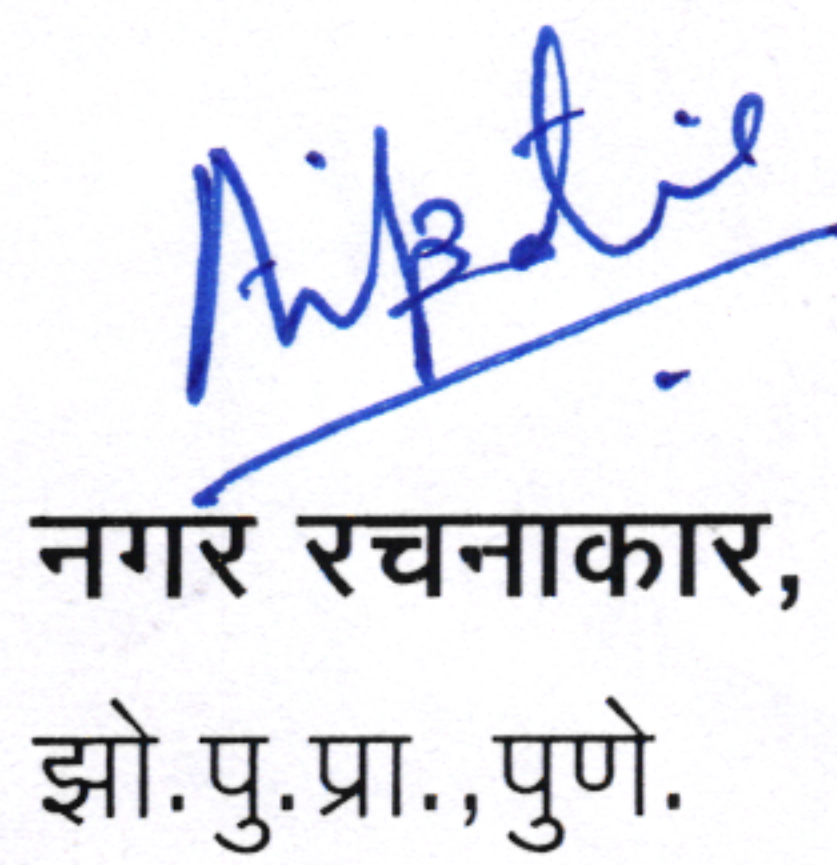 नगर रचनाकार,
झो.पु.प्रा.,पुणे.